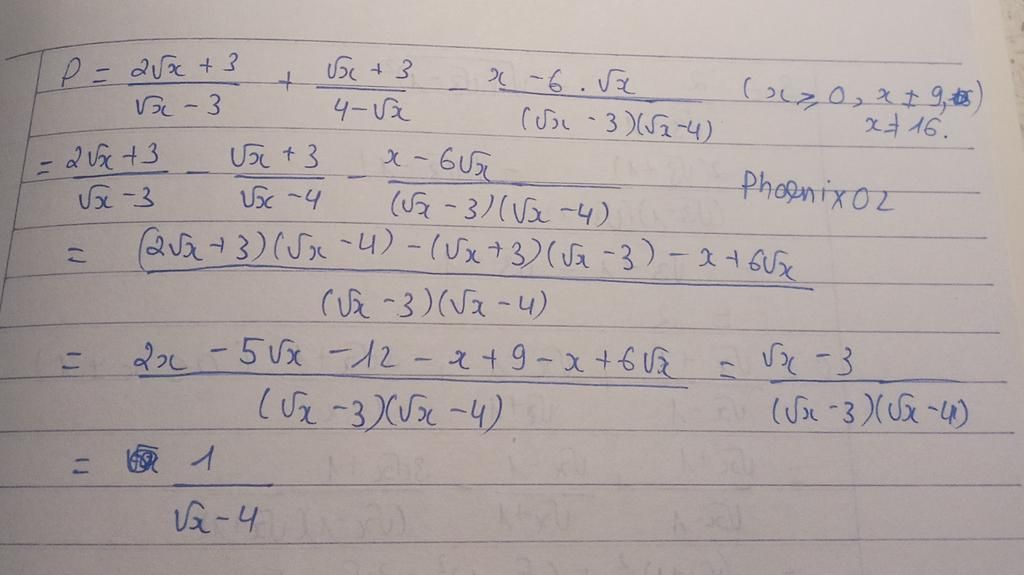 P = (2√x + 3)/(√x - 3) + (√x + 3)/(4 - √x) - (x - 6 . √x)/((√x - 3)(√x - 4)) (x ≥ 0, x ≠ 9,)
x ≠ 16.
= (2√x + 3)/(√x - 3) - (√x + 3)/(√x - 4) - (x - 6√x)/((√x - 3)(√x - 4)) Phoenix02
= ((2√x + 3)(√x - 4) - (√x + 3)(√x - 3) - x + 6√x)/((√x - 3)(√x - 4))
= (2x - 5√x - 12 - x + 9 - x + 6√x)/((√x - 3)(√x - 4)) = (√x - 3)/((√x - 3)(√x - 4))
= 1/(√x - 4)